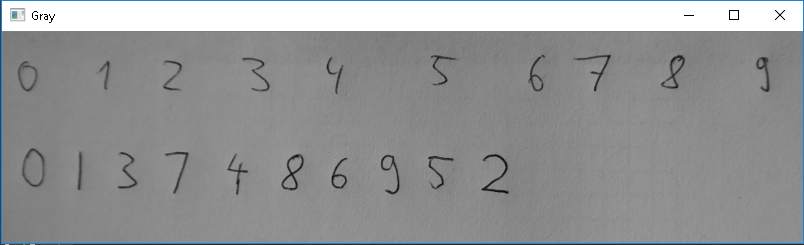 Gray
0 1 2 3 4 5 6 7 8 9
0 1 3 7 4 8 6 9 5 2